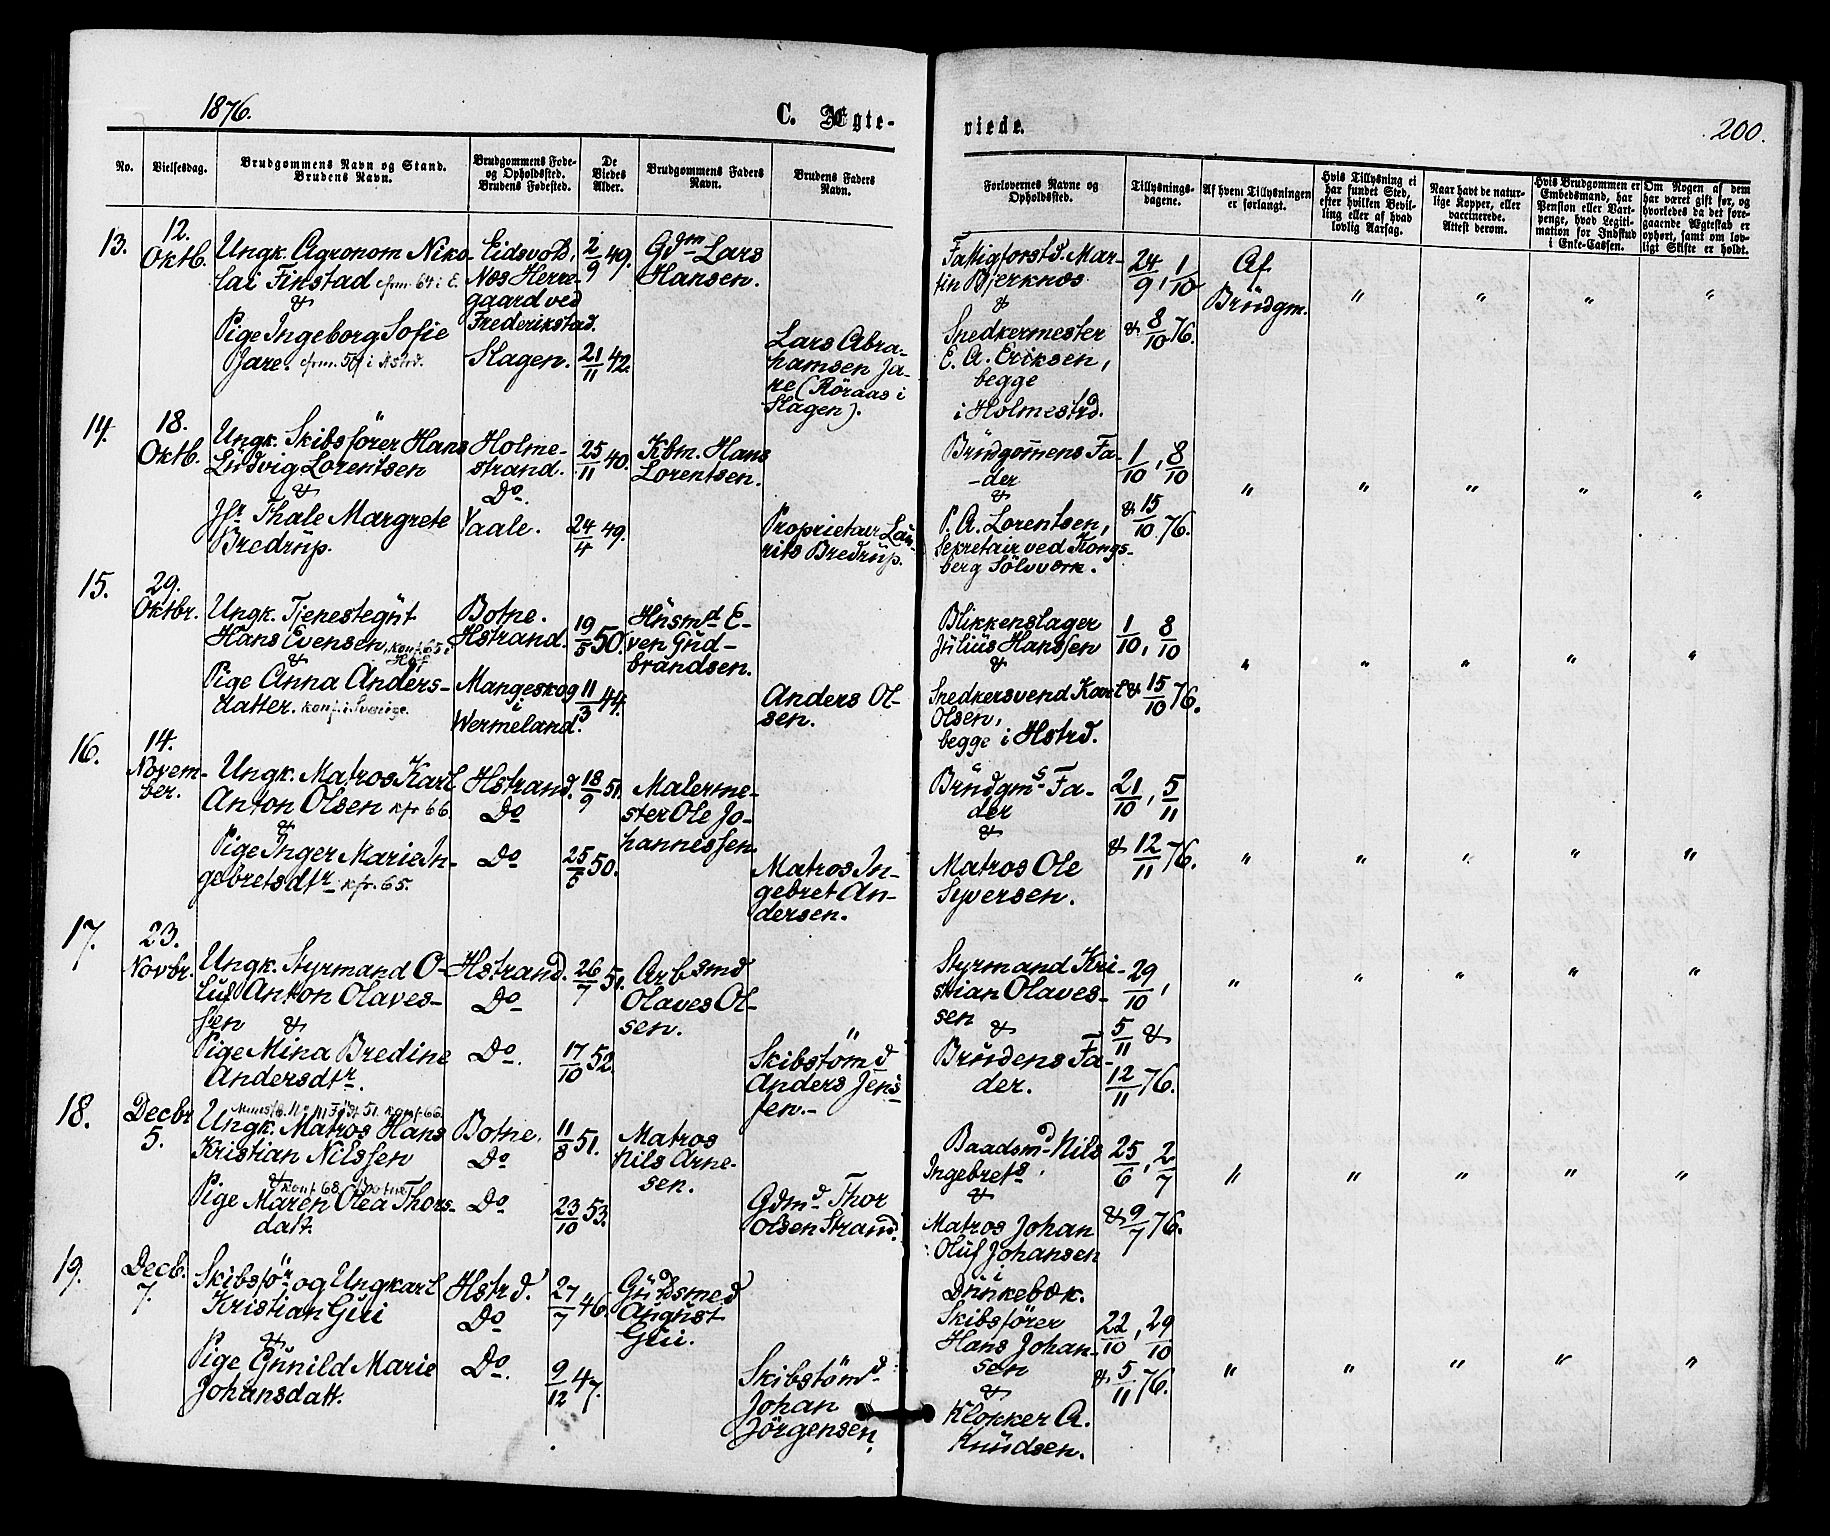 1876.
C. Ægte-
viede.
200.
No.
Vielsesdag.
Brudgommens Navn og Stand.
Brudens Navn.
Brudgommens Føde-
og Opholdssted.
Brudens Fødested.
De
Viedes
Alder.
Brudgommens Faders
Navn.
Brudens Faders
Navn.
Forlovernes Navne og
Opholdssted.
Tillysnings-
dagene.
Af hvem Tillysningen
er forlangt.
Hvis Tillysning ei
har fundet Sted,
efter hvilken Bevil-
ling eller af hvad
lovlig Aarsag.
Naar havt de natur-
lige Kopper, eller
vaccinerede.
Attest derom.
Hvis Brudgommen er
Embedsmand, har
Pension eller Vart-
penge, hvad Legiti-
mation for Indskud
i Enke-Cassen.
Om Nogen af dem
har været gift før, og
hvorledes da det fore-
gaaende Ægteskab er
ophørt, samt om lov-
ligt Skifte er holdt.
13.
12.
Oktb.
Ungk. Agronom Niko-
lai Finstad cfrm. 64 i E.
&
Pige Ingeborg Sofie
Jare. cfrm. 59 i Astrd.
Eidsvold,
Næs Herre-
gaard ved
Frederikstad.
Slagen.
2/9 49.
21/11 42.
Gdm Lars
Hansen.
Lars Abra-
hamsen Ja-
re (Röraas i
Slagen).
Fattigforstd. Mar-
tin Bjerknæs
&
Snedkermester
E. A. Eriksen,
begge
i Holmestrd.
24/9, 1/10
& 8/10 76.
Af
Brudgm.
" " " "
14.
18.
Oktb.
Ungk. Skibsförer Hans
Ludvig Lorentsen
&
Jfr Thale Margrete
Bredrup.
Holme-
strand.
Do.
Vaale.
25/11 40.
24/4 49.
Kbm. Hans
Lorentsen.
Proprietær Lau-
rits Bredrup.
Brudgommens Fa-
-der
&
P. A. Lorentsen,
Sekretair ved Kongs-
berg Sölvværk.
1/10, 8/10
& 15/10 76.
" " " " "
15.
29.
Oktbr.
Ungk. Tjenestegut
Hans Evensen, konf. 65 i
Hof
&
Pige Anna Anders-
datter. konf. i Sverige.
Botne.
Hstrand.
Mangeskog
i
Wermeland.
19/5 50.
11/3 44.
Husmd E-
ven Gud-
brandsen.
Anders Ol-
sen.
Blikkenslager
Julius Hanssen
&
Snedkersvend Karl
Olsen,
begge i Hstrd.
1/10, 8/10
& 15/10 76.
" " " " "
16.
14.
Novem-
ber.
Ungk. Matros Karl
Anton Olsen kfr 66.
&
Pige Inger Marie In-
gebretsdtr kfr. 65.
Hstrand.
Do
Do
18/9 51.
25/6 50.
Malerme-
ster Ole Jo-
hannessen.
Matros In-
gebret An-
dersen.
Brudgms Fa-
der
&
Matros Ole
Syversen.
21/10, 5/11
& 12/11 76.
" " " " "
17.
23.
Novbr.
Ungk. Styrmand O-
luf Anton Olaves-
sen &
Pige Mina Bredine
Andersdtr.
Hstrand.
Do
Do.
26/7 51.
17/10 52.
Arbsmd
Olaves Ol-
sen.
Skibstömd
Anders Jens-
sen.-
Styrmand Kri-
stian Olaves-
sen
&
Brudens Fa-
der.
29/10,
5/11 &
12/11 76.
" " " " "
18.
Decbr
5.
51. konf. 66.
Ungk. Matros Hans
Kristian Nilssen
&
konf. 68. Botne
Pige Maren Olea Thors-
datt.
Botne.
Do
Do
11/8 51.
23/10 53.
Matros
Nils Arne-
sen.
Gdmd Thor
Olsen Strand.
Baadsmd Nils
Ingebrets.
&
Matros Johan
Oluf Johansen
i
Dunkebæk.
25/6, 2/7
& 9/7 76.
" " " " "
19.
Decb.
7.
Skibsför og Ungkarl
Kristian Gui
&
Pige Gunild Marie
Johansdatt.
Hstrd.
Do
Do.
27/7 46.
9/12 47.
Guldsmed
August
Gui.
Skibstömd
Johan
Jörgensen.
Skibsförer
Hans Johan-
sen
&
Klokker A.
Knudsen.
22/10, 29/10
& 5/11 76.
" " " " "